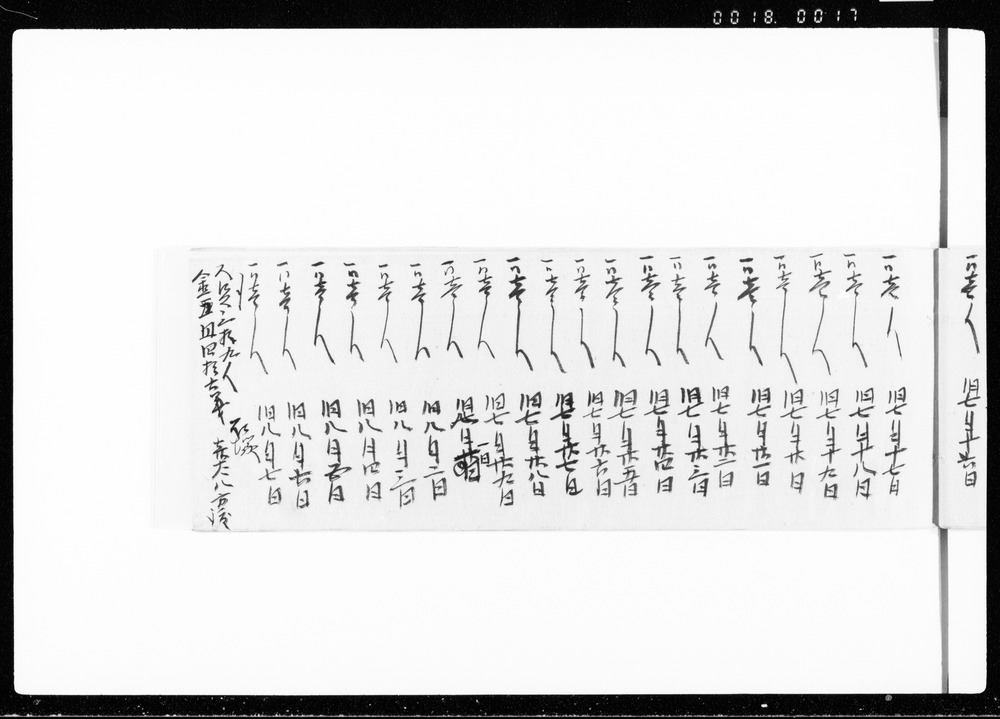 0018. 0017
一同壱人 旧七月十六日
一同壱人 旧七月十七日
一同壱人 旧七月十八日
一同壱人 旧七月十九日
一同壱人 旧七月廿日
一同壱人 旧七月廿一日
一同壱人 旧七月廿二日
一同壱人 旧七月廿三日
一同壱人 旧七月廿四日
一同壱人 旧七月廿五日
一同壱人 旧七月廿六日
一同壱人 旧七月廿七日
一同壱人 旧七月廿八日
一同壱人 旧七月廿九日
一同壱人
一同壱人 旧八月二日
一同壱人 旧八月三日
一同壱人 旧八月四日
一同壱人 旧八月五日
一同壱人 旧八月六日
一同壱人 旧八月七日
人足三拾九人 石塚
金五円四拾六銭